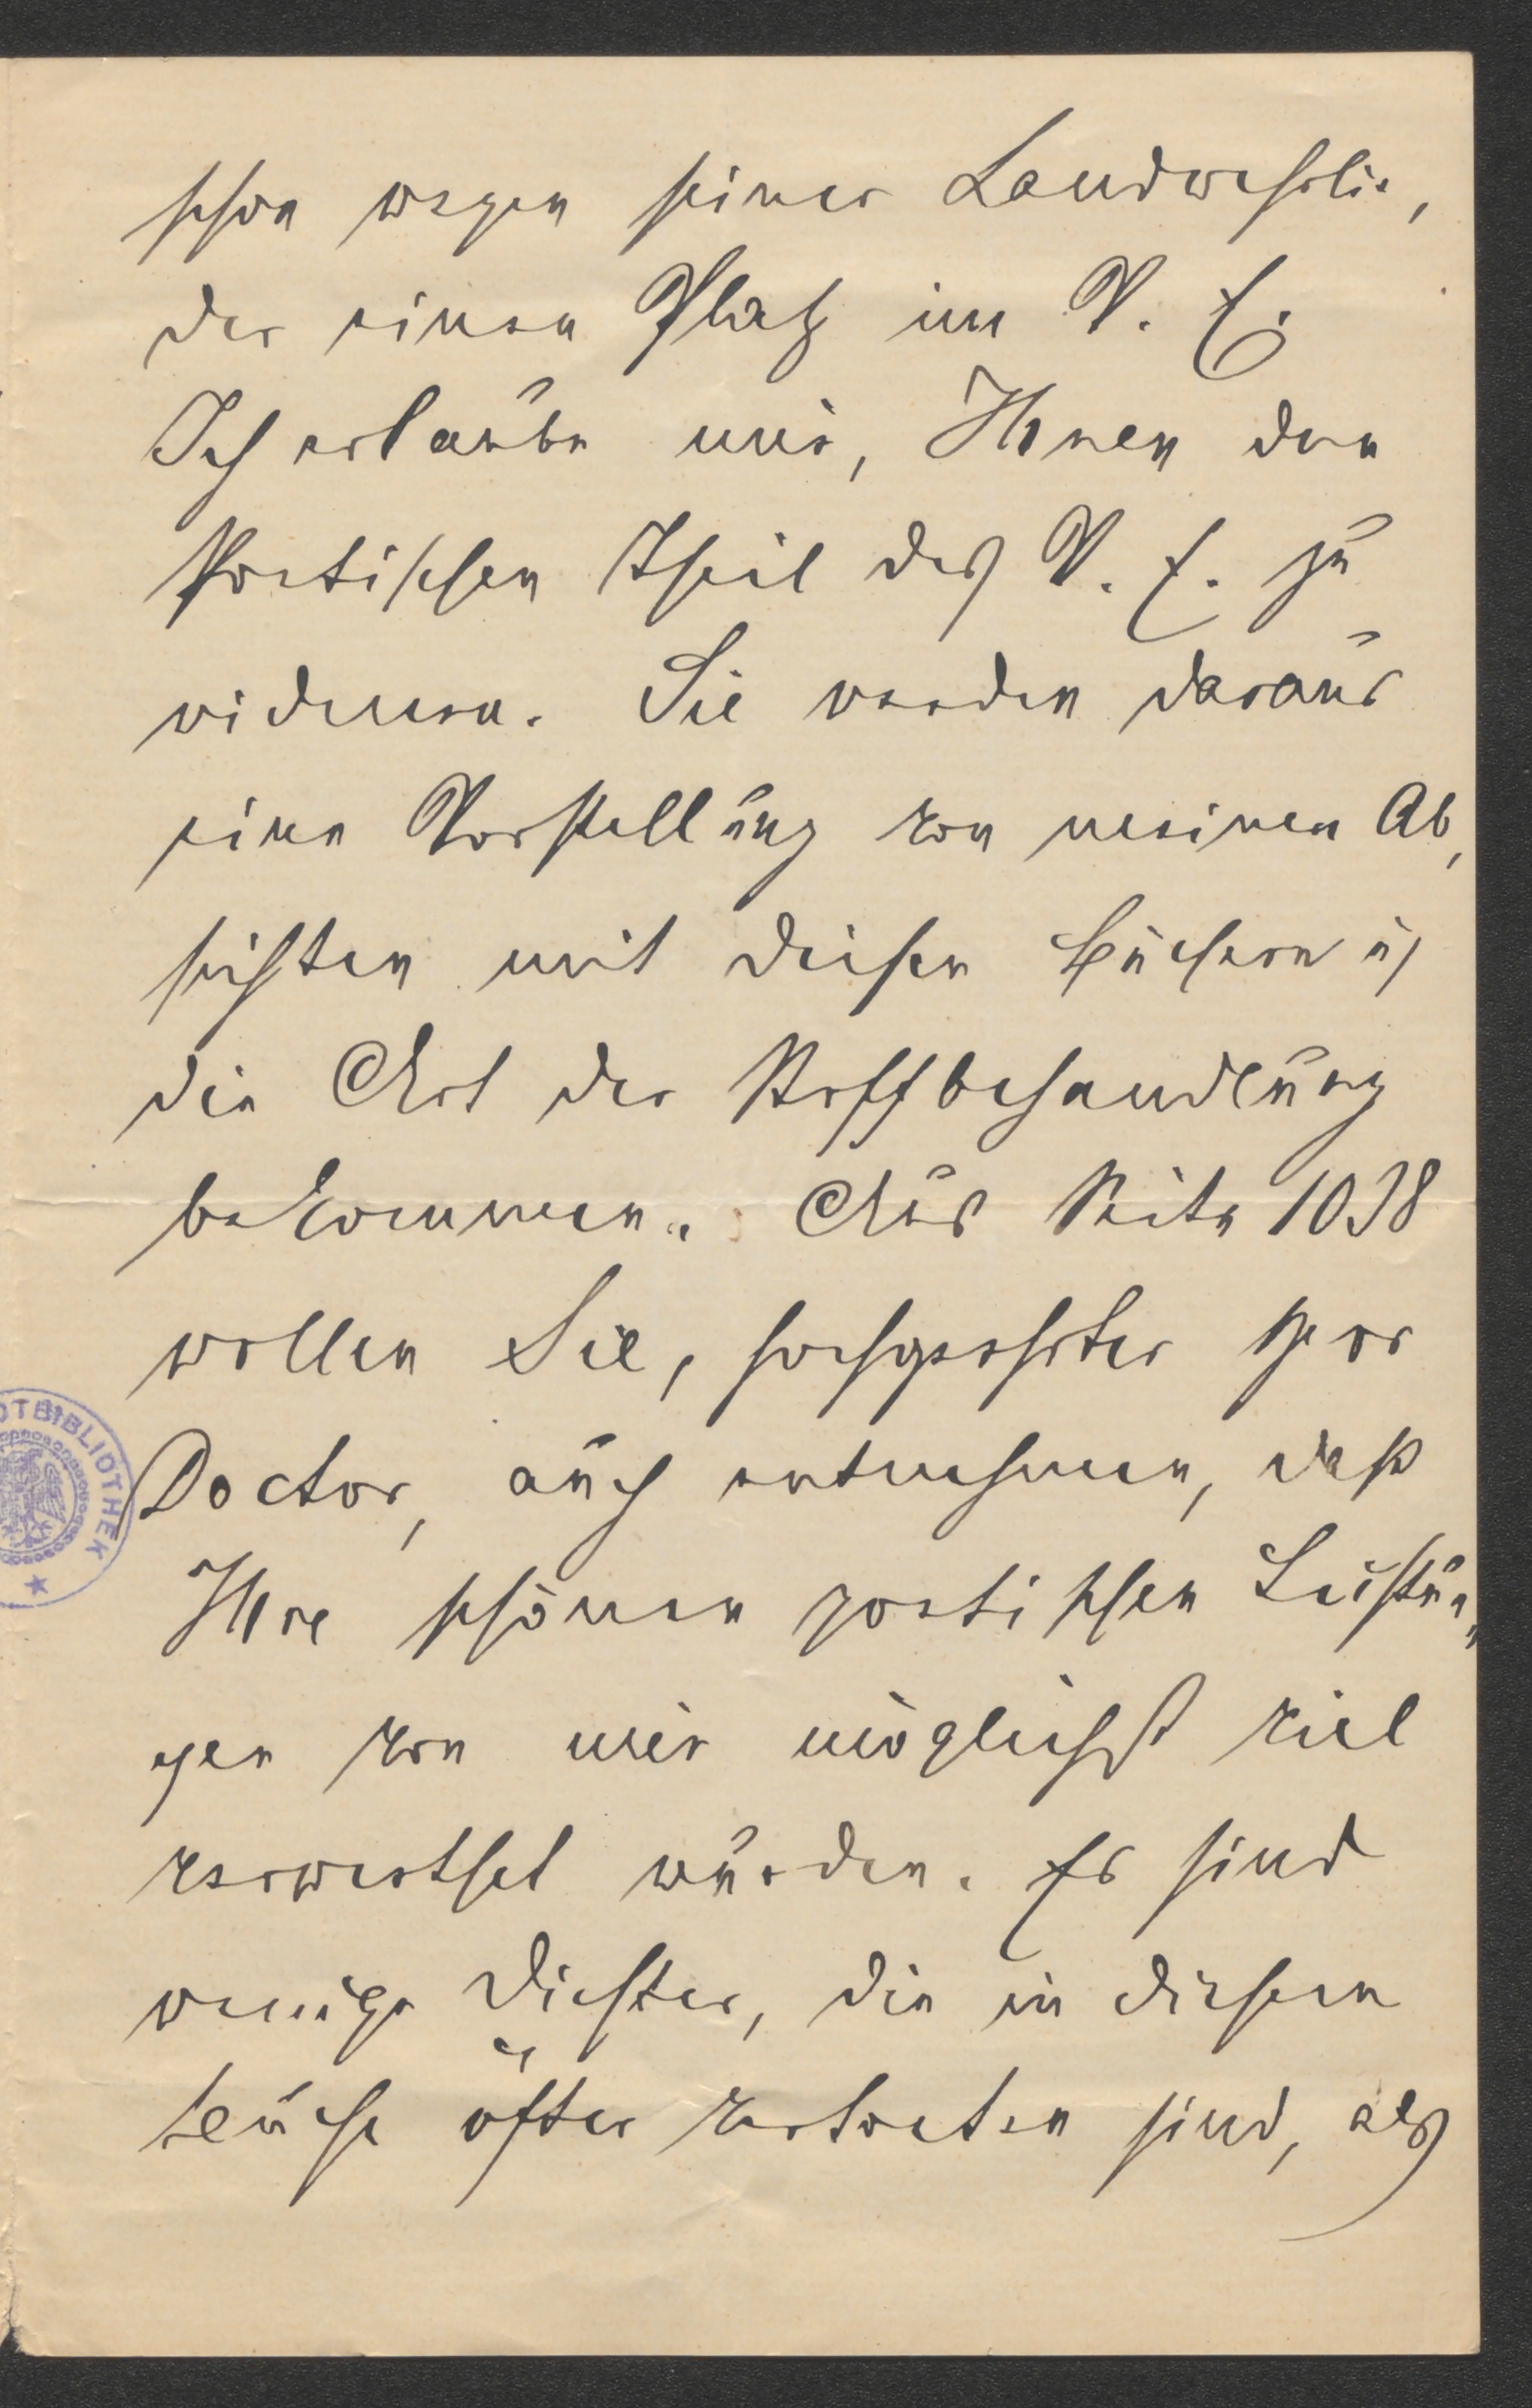 schon wegen seiner Landwehrlie,
der einen Platz im V. E.
Ich erlaube mir, Ihnen den
Poetischen Theil des V. E. zu
widmen. Sie werden daraus
eine Vorstellung von meinen Ab,
sichten mit diesen Büchern u
die Art der Stoffbehandlung
bekommen. Aus Seite 1038
wollen Sie, hochgeehrter Herr
Doctor, auch entnehmen, daß
Ihre schönen poetischen Leistun„
gen von mir möglichst viel
verwerthet wurden. Es sind
wenige Dichter, die in diesem
Buche öfter vertreten sind, als
OTBIBLIOTHEK